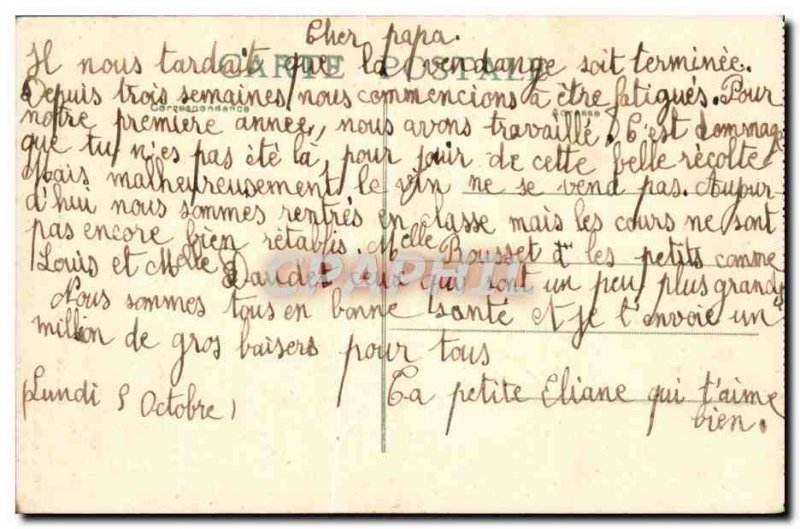 Cher papa.
CARTE POSTALE
Il nous tardait que la vendange soit terminée.
Depuis trois semaines nous commencions à être fatigués. Pour
Correspondance
notre première année, nous avons travaillé. C'est dommage
que tu n'es pas été là, pour jouir de cette belle récolte
Mais malheureusement le vin ne se vend pas. Aujour-
d'hui nous sommes rentrés en classe mais les cours ne sont
pas encore bien rétablis. Melle Bousset a les petits comme
Louis et Melle Daudet ceux qui sont un peu plus grands
CPAPHIL
Nous sommes tous en bonne santé et je t'envoie un
million de gros baisers pour tous
(Lundi 5 Octobre)
Ta petite Eliane qui t'aime
bien.